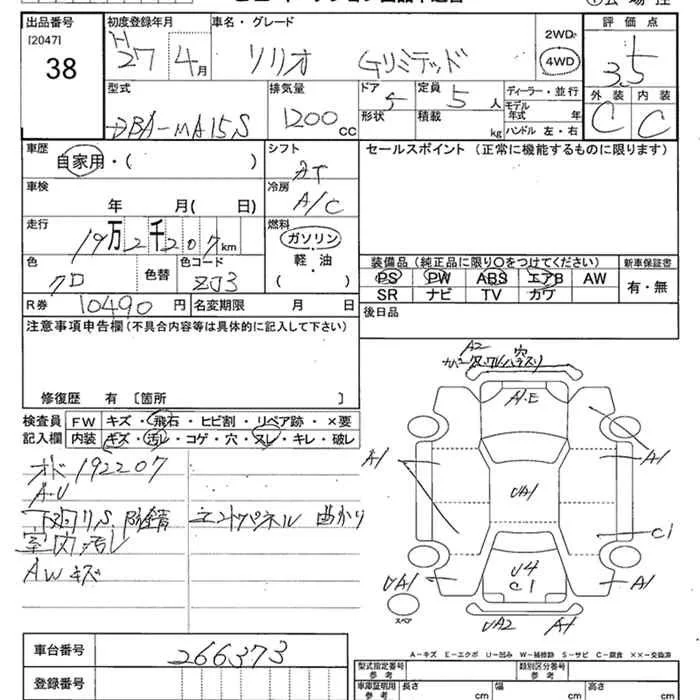 出品番号 初度登録年月 車名・グレード 評価点
[2047]
38
H27 4月 ソリオ Gリミテッド
2WD
4WD
3.5
外装 内装
C C
型式 排気量 ドア 定員 ディーラー・並行
DBA-MA15S 1200cc 5 5人
形状 積載 kg
モデル年式 年
ハンドル 左・右
車歴 シフト セールスポイント (正常に機能するものに限ります)
自家用・( ) AT
車検 冷房
年 月( 日) A/C
走行 燃料
19万2千207km ガソリン
軽・油
( )
色 色替 色コード
クロ ZJ3
装備品 (純正品に限り〇をつけてください) 新車保証書
PS PW ABS エアB AW 有・無
SR ナビ TV カワ
R券 10490円 名変期限 月 日
後日品
注意事項申告欄(不具合内容等は具体的に記入して下さい)
修復歴 有 [箇所 ]
検査員記入欄
FW キズ・飛石・ヒビ割・リペア跡・×要
内装 キズ・汚レ・コゲ・穴・スレ・キレ・破レ
オド192207
A・U
下回りS 防錆 エンドパネル曲がり
室内汚レ
AWキズ
A2
A・E
A1 A1
UA1
C1
U4
C1
UA1 A1
スペア
UA2 A1
A-キズ E-エクボ U-凹み W-補修跡 S-サビ C-腐食 ××-交換済
車台番号 266373
登録番号
型式指定番号 類別区分番号
車庫証明用参考 長さ cm 幅 cm 高さ cm